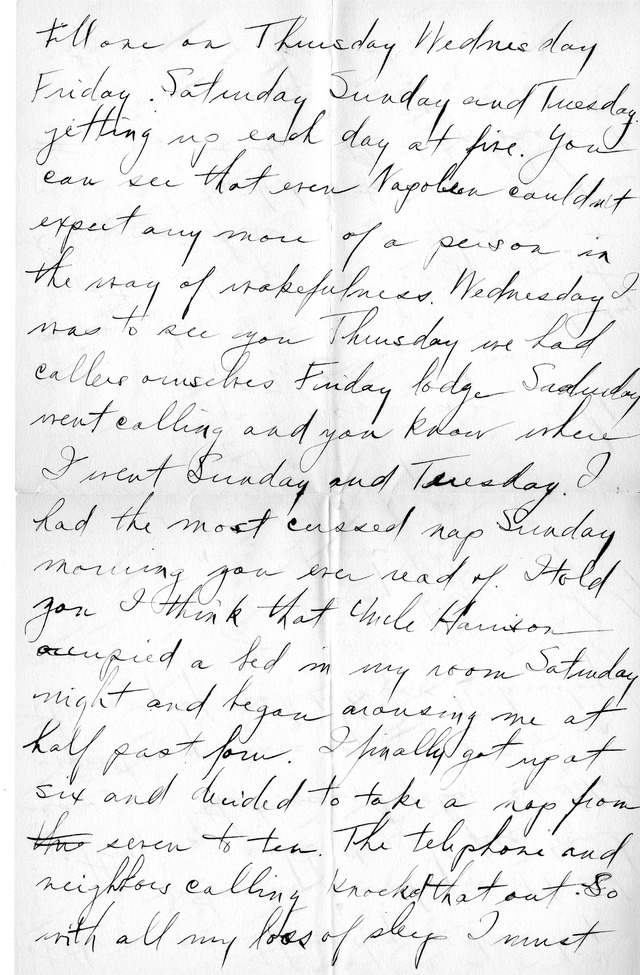 till one on Thursday Wednesday
Friday. Saturday Sunday and Tuesday.
getting up each day at five. You
can see that even Napoleon couldn't
expect any more of a person in
the way of wakefulness. Wednesday I
was to see you Thursday we had
callers ourselves Friday lodge Saturday
went calling and you know where
I went Sunday and Tuesday. I
had the most cussed nap Sunday
morning you ever read of. I told
you I think that Uncle Harrison
occupied a bed in my room Saturday
night and began arousing me at
half past four. I finally got up at
six and decided to take a nap from
seven to ten. The telephone and
neighbors calling knocked that out. So
with all my loss of sleep I must